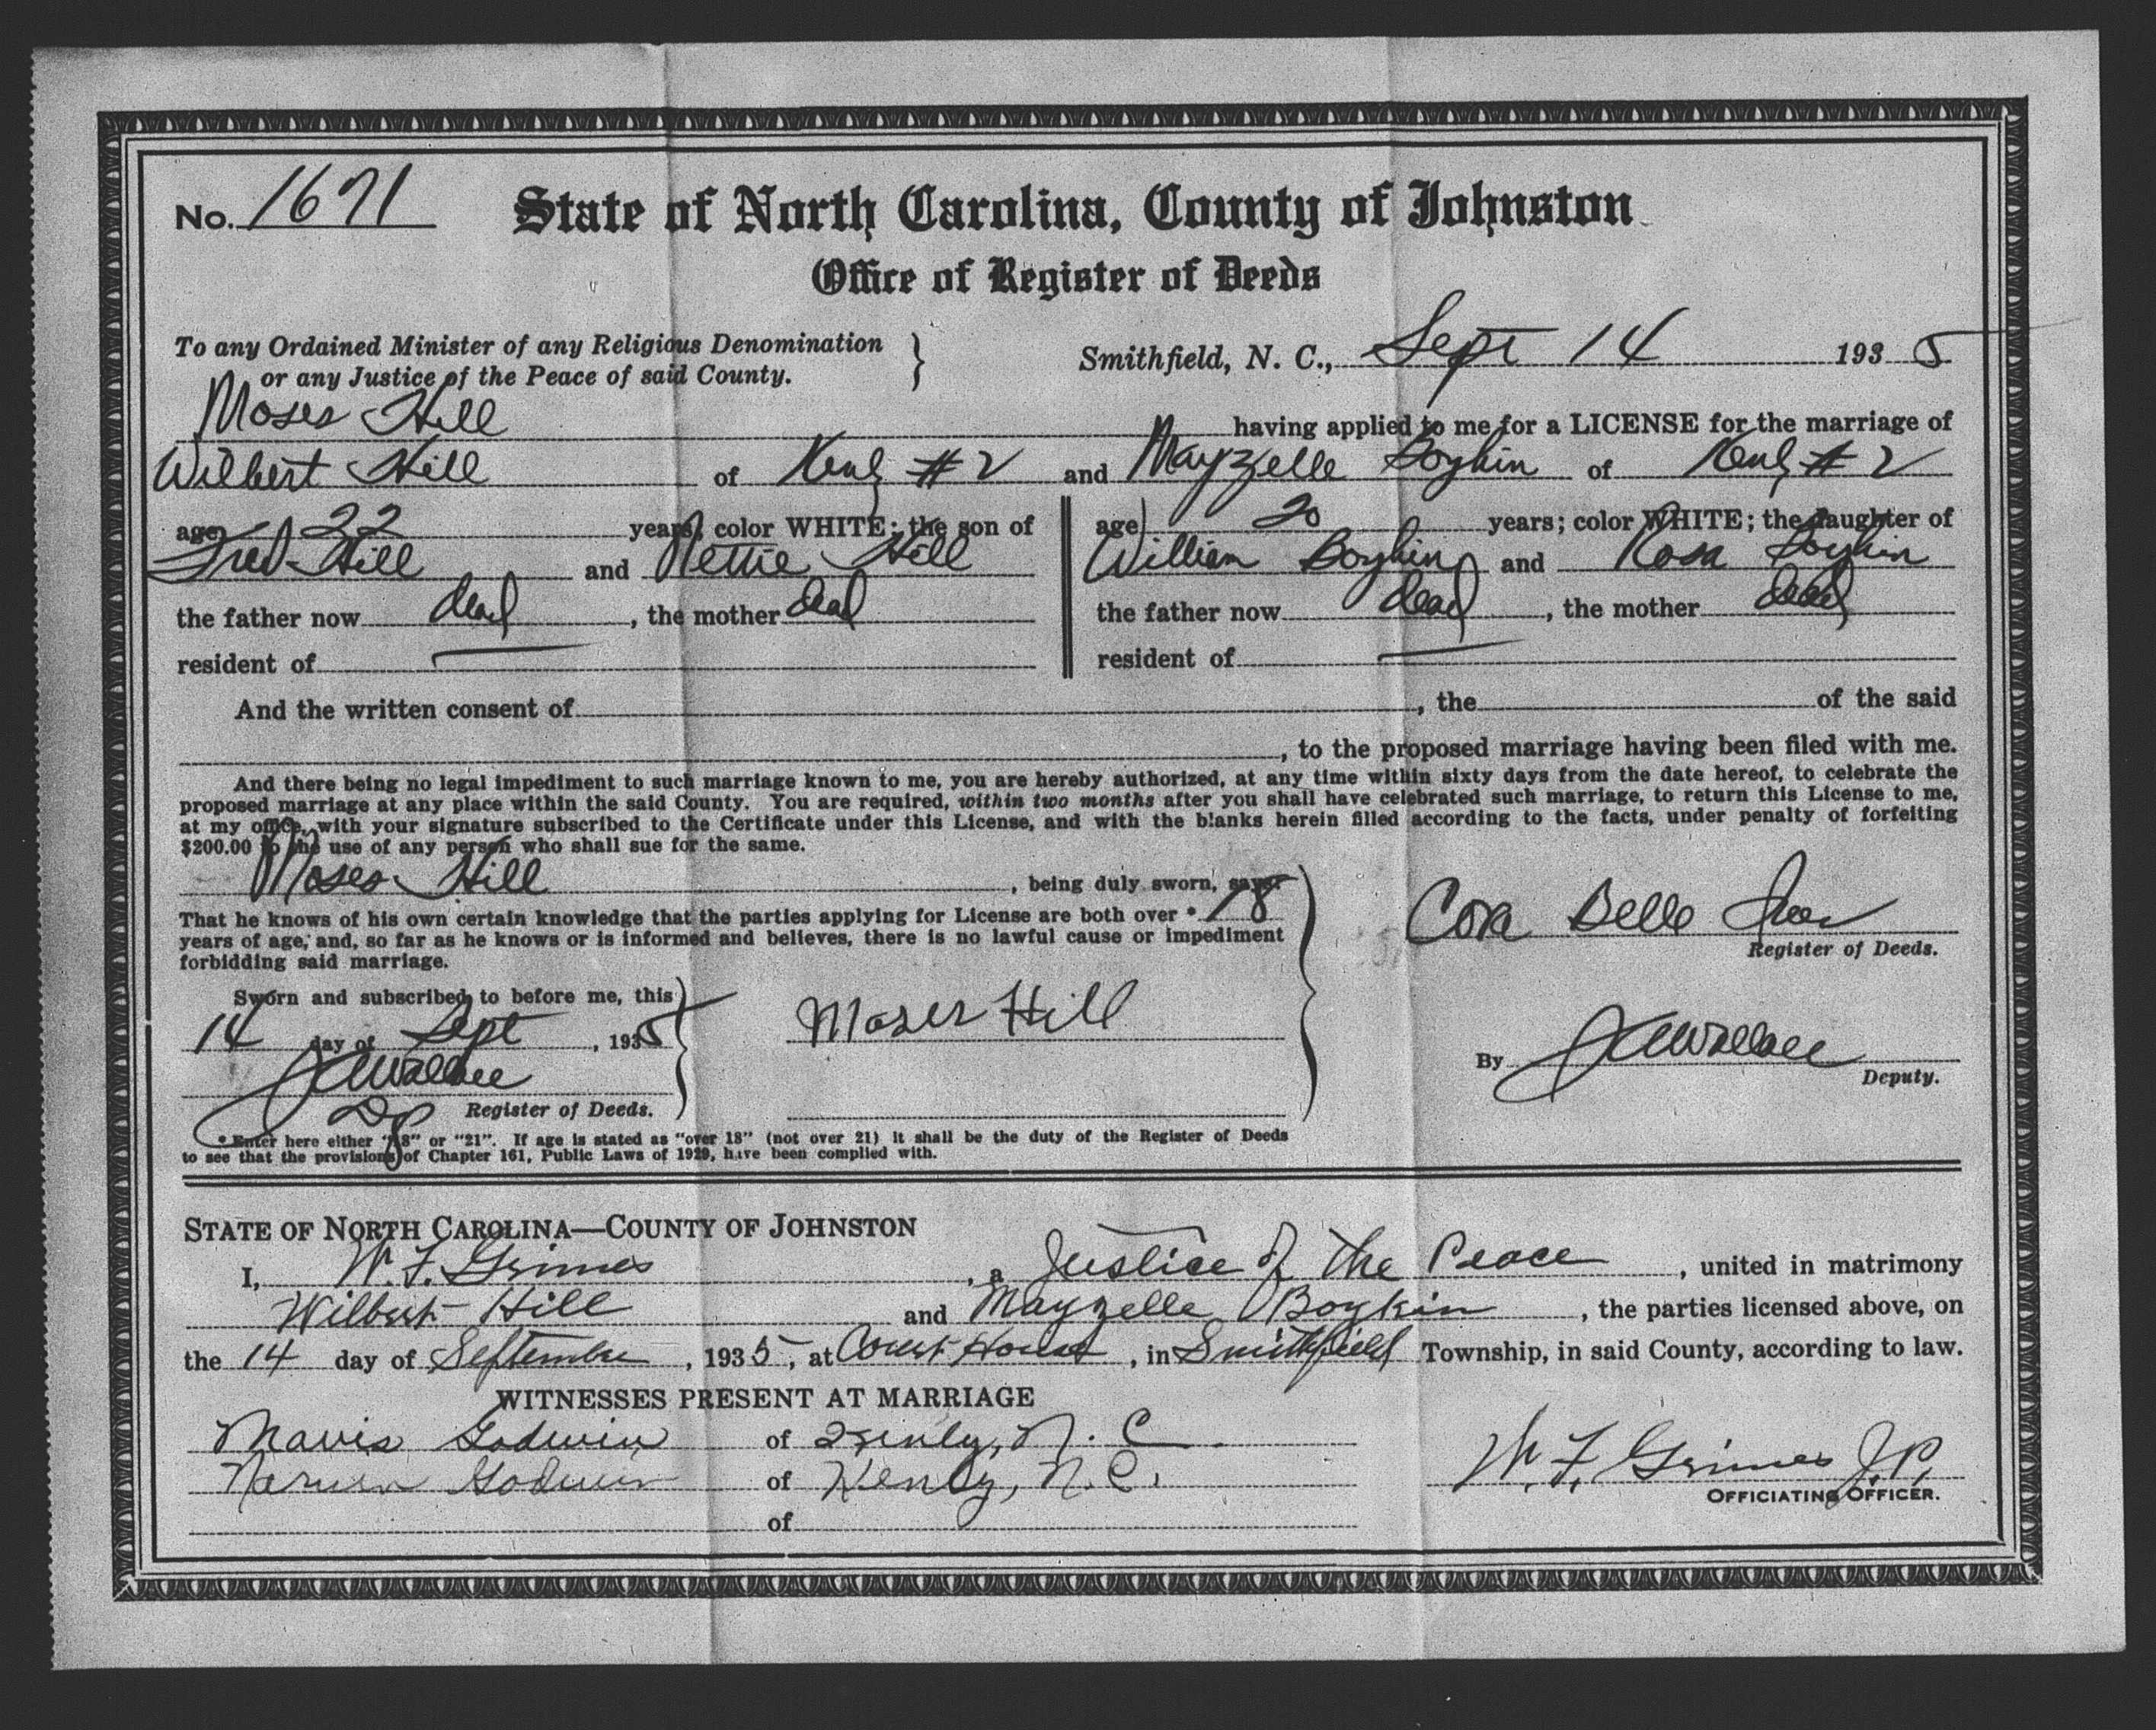 No. 1671 State of North Carolina, County of Johnston
Office of Register of Deeds
To any Ordained Minister of any Religious Denomination
or any Justice of the Peace of said County.
Smithfield, N. C., Sept 14 1935
Moses Hill having applied to me for a LICENSE for the marriage of
Wilbert Hill of Kenly #2 and Mayzelle Boykin of Kenly #2
age 22 years, color WHITE; the son of
Fred Hill and Nettie Hill
the father now dead, the mother dead
resident of
age 20 years; color WHITE; the daughter of
William Boykin and Rosa Boykin
the father now dead, the mother dead
resident of
And the written consent of , the of the said
, to the proposed marriage having been filed with me.
And there being no legal impediment to such marriage known to me, you are hereby authorized, at any time within sixty days from the date hereof, to celebrate the
proposed marriage at any place within the said County. You are required, within two months after you shall have celebrated such marriage, to return this License to me,
at my office, with your signature subscribed to the Certificate under this License, and with the blanks herein filled according to the facts, under penalty of forfeiting
$200.00 to the use of any person who shall sue for the same.
Moses Hill, being duly sworn, says:
That he knows of his own certain knowledge that the parties applying for License are both over * 18
years of age, and, so far as he knows or is informed and believes, there is no lawful cause or impediment
forbidding said marriage.
Sworn and subscribed to before me, this
14 day of Sept, 1935
Wallace
Dp Register of Deeds.
Moses Hill
Cora Belle
Register of Deeds.
By Wallace
Deputy.
* Enter here either "18" or "21". If age is stated as "over 18" (not over 21) it shall be the duty of the Register of Deeds
to see that the provisions of Chapter 161, Public Laws of 1929, have been complied with.
STATE OF NORTH CAROLINA—COUNTY OF JOHNSTON
I, W. F. Grimes, a Justice of The Peace, united in matrimony
Wilbert Hill and Mayzelle Boykin, the parties licensed above, on
the 14 day of September, 1935, at Court House, in Smithfield Township, in said County, according to law.
WITNESSES PRESENT AT MARRIAGE
Mavis Godwin of Kenly, N. C.
Godwin of Kenly, N. C.
of
W. F. Grimes J.P.
OFFICIATING OFFICER.